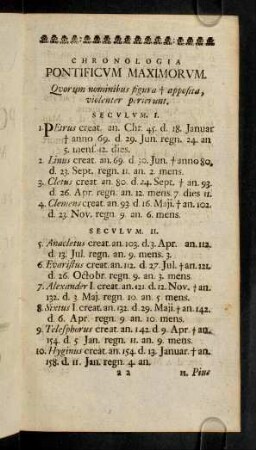 CHRONOLOGIA
PONTIFICVM MAXIMORVM.
Qvorum nominibus figura † apposita,
violenter perierunt.
SECVLVM. I.
1. PEtrus creat. an. Chr. 45. d. 18. Januar
† anno 69. d 29. Jun. regn. 24. an
5. mens. 12. dies.
2. Linus creat. an. 69. d 30. Jun. † anno 80.
d. 23. Sept. regn. 11. an. 2. mens.
3. Cletus creat an. 80. d. 24. Sept. † an. 93.
d 26. Apr. regn. an. 12. mens. 7. dies 11.
4. Clemens creat. an. 93 d 16. Maji. † an. 102.
d. 23. Nov. regn. 9. an. 6. mens.
SECVLVM. II.
5. Anacletus creat. an. 103. d. 3. Apr. an. 112.
d 13. Jul. regn. an. 9. mens. 3.
6. Evaristus creat. an. 112. d. 27. Jul. † an. 121.
d. 26. Octobr. regn. 9. an. 3. mens.
7. Alexander I. creat. an. 121. d. 12. Nov. † an.
132. d. 3. Maj. regn. 10. an. 5. mens.
8. Sixtus I. creat. an. 132. d 29. Maji. † an. 142.
d 6. Apr. regn. 9. an. 10. mens.
9. Telesphorus creat. an. 142. d 9. Apr. † an.
154. d 5. Jan. regn. 11. an. 9. mens.
10. Hyginus creat. an. 154. d. 13. Januar. † an.
158. d. 11. Jan. regn. 4. an.
a 2 11. Pius